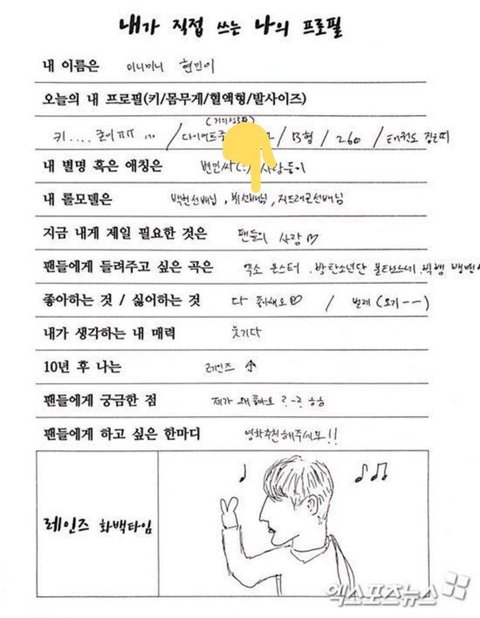 내가 직접 쓰는 나의 프로필
내 이름은 미니미니 현민이
오늘의 내 프로필(키/몸무게/혈액형/발사이즈)
키.... / 다이어트 / B형 / 260 / 태권도 검은띠
내 별명 혹은 애칭은 변민싸(?) 사랑둥이
내 롤모델은 백현선배님, 뷔선배님, 지드래곤선배님
지금 내게 제일 필요한 것은 팬들의 사랑♡
팬들에게 들려주고 싶은 곡은 엑소 몬스터, 방탄소년단 불타오르네 빅뱅 뱅뱅
좋아하는 것 / 싫어하는 것 다 좋아해요♡ / 벌레 (모기ㅡㅡ)
내가 생각하는 내 매력 웃기다
10년 후 나는 레인즈 ↑
팬들에게 궁금한 점 제가 왜 좋아요 ?-? ㅎㅎ
팬들에게 하고 싶은 한마디 영화추천해주세요!!
레인즈 화백타임
엑스포츠뉴스